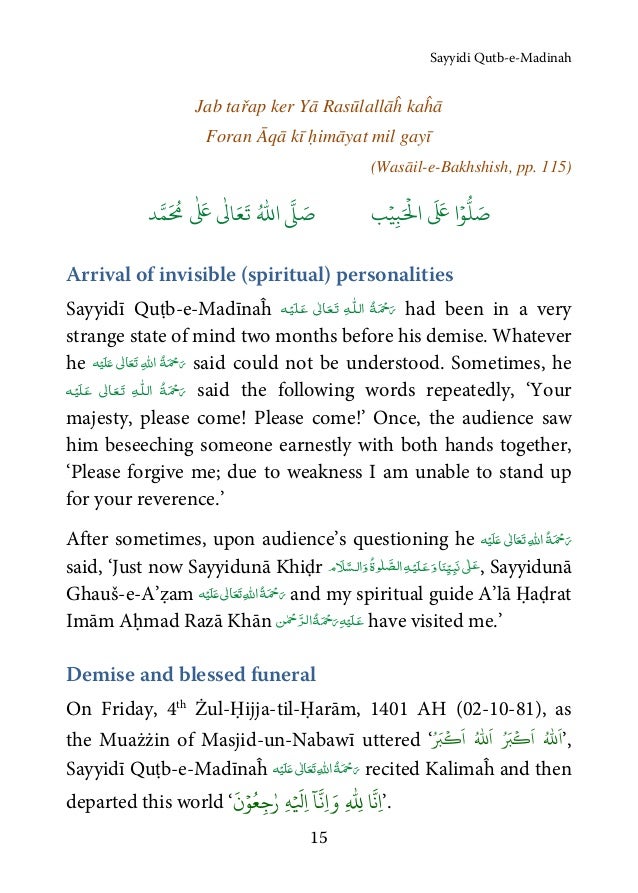 Sayyidi Qutb-e-Madinah
Jab tařap ker Yā Rasūlallāĥ kaĥā
Foran Āqā kī ḥimāyat mil gayī
(Wasāil-e-Bakhshish, pp. 115)
صَلُّوْا عَلَى الْحَبِيْب صَلَّى اللّٰهُ تَعَالٰى عَلٰى مُحَمَّد
Arrival of invisible (spiritual) personalities
Sayyidī Quṭb-e-Madīnaĥ رَحْمَةُ اللّٰهِ تَعَالٰى عَلَيْه had been in a very
strange state of mind two months before his demise. Whatever
he رَحْمَةُ اللّٰهِ تَعَالٰى عَلَيْه said could not be understood. Sometimes, he
رَحْمَةُ اللّٰهِ تَعَالٰى عَلَيْه said the following words repeatedly, ‘Your
majesty, please come! Please come!’ Once, the audience saw
him beseeching someone earnestly with both hands together,
‘Please forgive me; due to weakness I am unable to stand up
for your reverence.’
After sometimes, upon audience’s questioning he رَحْمَةُ اللّٰهِ تَعَالٰى عَلَيْه
said, ‘Just now Sayyidunā Khiḍr عَلٰى نَبِيِّنَا وَعَلَيْهِ الصَّلٰوةُ وَالسَّلَام, Sayyidunā
Ghauš-e-A’ẓam رَحْمَةُ اللّٰهِ تَعَالٰى عَلَيْه and my spiritual guide A’lā Ḥaḍrat
Imām Aḥmad Razā Khān عَلَيْهِ رَحْمَةُ الرَّحْمٰن have visited me.’
Demise and blessed funeral
On Friday, 4th Żul-Ḥijja-til-Ḥarām, 1401 AH (02-10-81), as
the Muażżin of Masjid-un-Nabawī uttered ‘اَللّٰهُ اَكْبَرُ اَللّٰهُ اَكْبَرُ’,
Sayyidī Quṭb-e-Madīnaĥ رَحْمَةُ اللّٰهِ تَعَالٰى عَلَيْه recited Kalimaĥ and then
departed this world ‘اِنَّا لِلّٰهِ وَاِنَّآ اِلَيْهِ رٰجِعُوْنَ’.
15